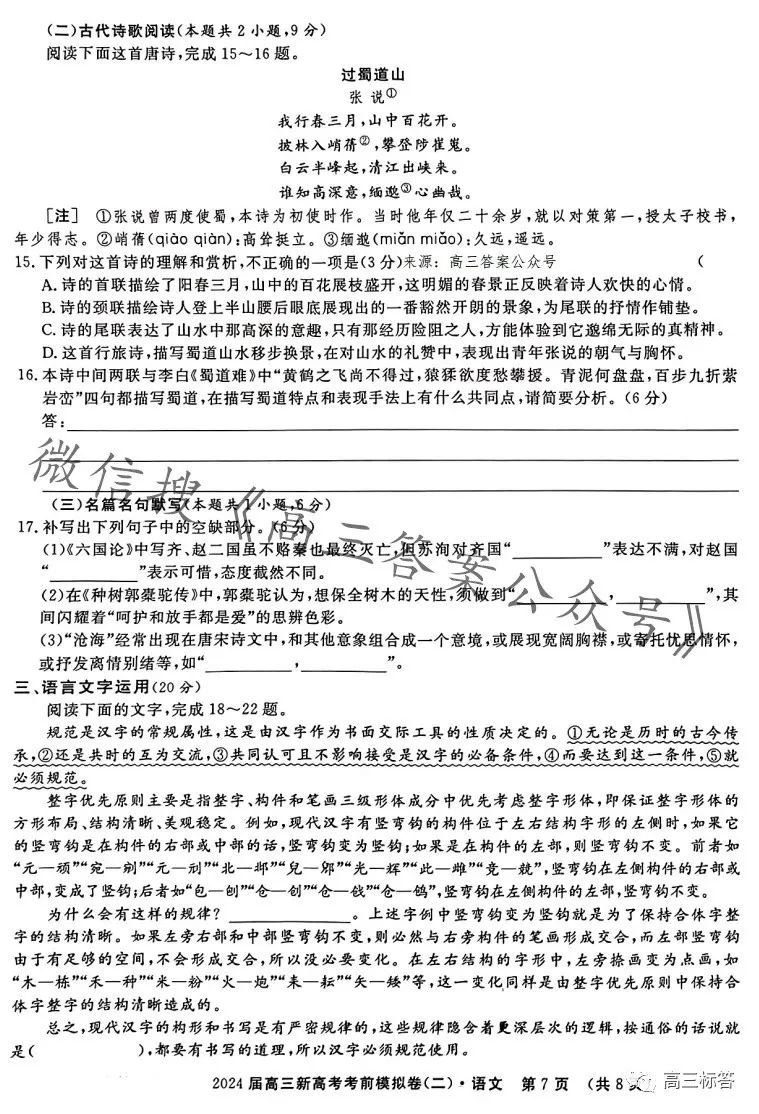 (二)古代诗歌阅读(本题共2小题,9分)
阅读下面这首唐诗,完成15～16题。
过蜀道山
张 说①
我行春三月,山中百花开。
披林入峭蒨②,攀登陟崔嵬。
白云半峰起,清江出峡来。
谁知高深意,缅邈③心幽哉。
[注] ①张说曾两度使蜀,本诗为初使时作。当时他年仅二十余岁,就以对策第一,授太子校书,
年少得志。②峭蒨(qiào qiàn):高耸挺立。③缅邈(miǎn miǎo):久远,遥远。
15.下列对这首诗的理解和赏析,不正确的一项是(3分)来源：高三答案公众号 (
A.诗的首联描绘了阳春三月,山中的百花展枝盛开,这明媚的春景正反映着诗人欢快的心情。
B.诗的颈联描绘诗人登上半山腰后眼底展现出的一番豁然开朗的景象,为尾联的抒情作铺垫。
C.诗的尾联表达了山水中那高深的意趣,只有那经历险阻之人,方能体验到它邈绵无际的真精神。
D.这首行旅诗,描写蜀道山水移步换景,在对山水的礼赞中,表现出青年张说的朝气与胸怀。
16.本诗中间两联与李白《蜀道难》中“黄鹤之飞尚不得过,猿猱欲度愁攀援。青泥何盘盘,百步九折萦
岩峦”四句都描写蜀道,在描写蜀道特点和表现手法上有什么共同点,请简要分析。(6分)
答:
(三)名篇名句默写(本题共1小题,6分)
17.补写出下列句子中的空缺部分。(6分)
(1)《六国论》中写齐、赵二国虽不赂秦也最终灭亡,但苏洵对齐国“____”表达不满,对赵国
“____”表示可惜,态度截然不同。
(2)在《种树郭橐驼传》中,郭橐驼认为,想保全树木的天性,须做到“____,____”,其
间闪耀着“呵护和放手都是爱”的思辨色彩。
(3)“沧海”经常出现在唐宋诗文中,和其他意象组合成一个意境,或展现宽阔胸襟,或寄托忧思情怀,
或抒发离情别绪等,如“____,____”。
三、语言文字运用(20分)
阅读下面的文字,完成18～22题。
规范是汉字的常规属性,这是由汉字作为书面交际工具的性质决定的。①无论是历时的古今传
承,②还是共时的互为交流,③共同认可且不影响接受是汉字的必备条件,④而要达到这一条件,⑤就
必须规范。
整字优先原则主要是指整字、构件和笔画三级形体成分中优先考虑整字形体,即保证整字形体的
方形布局、结构清晰、美观稳定。例如,现代汉字有竖弯钩的构件位于左右结构字形的左侧时,如果它
的竖弯钩是在构件的右部或中部的话,竖弯钩变为竖钩;如果是在构件的左部,则竖弯钩不变。前者如
“元—顽”“宛—剜”“元—刓”“北—邶”“兒—郳”“光—辉”“此—雌”“竞—兢”,竖弯钩在左侧构件的右部或
中部,变成了竖钩;后者如“包—刨”“仓—创”“仓—戗”“仓—鸧”,竖弯钩在左侧构件的左部,竖弯钩不变。
为什么会有这样的规律？____。上述字例中竖弯钩变为竖钩就是为了保持合体字整
字的结构清晰。如果左旁右部和中部竖弯钩不变,则必然与右旁构件的笔画形成交合,而左部竖弯钩
由于有足够的空间,不会形成交合,所以没必要变化。在左右结构的字形中,左旁捺画变为点画,如
“木—栋”“禾—种”“米—粉”“火—炮”“耒—耘”“矢—矮”等,这一变化同样是由整字优先原则中保持合
体字整字的结构清晰造成的。
总之,现代汉字的构形和书写是有严密规律的,这些规律隐含着更深层次的逻辑,按通俗的话说就
是( ),都要有书写的道理,所以汉字必须规范使用。
微信搜《高三答案公众号》
2024届高三新高考考前模拟卷(二)·语文 第7页 (共8页
高三标答